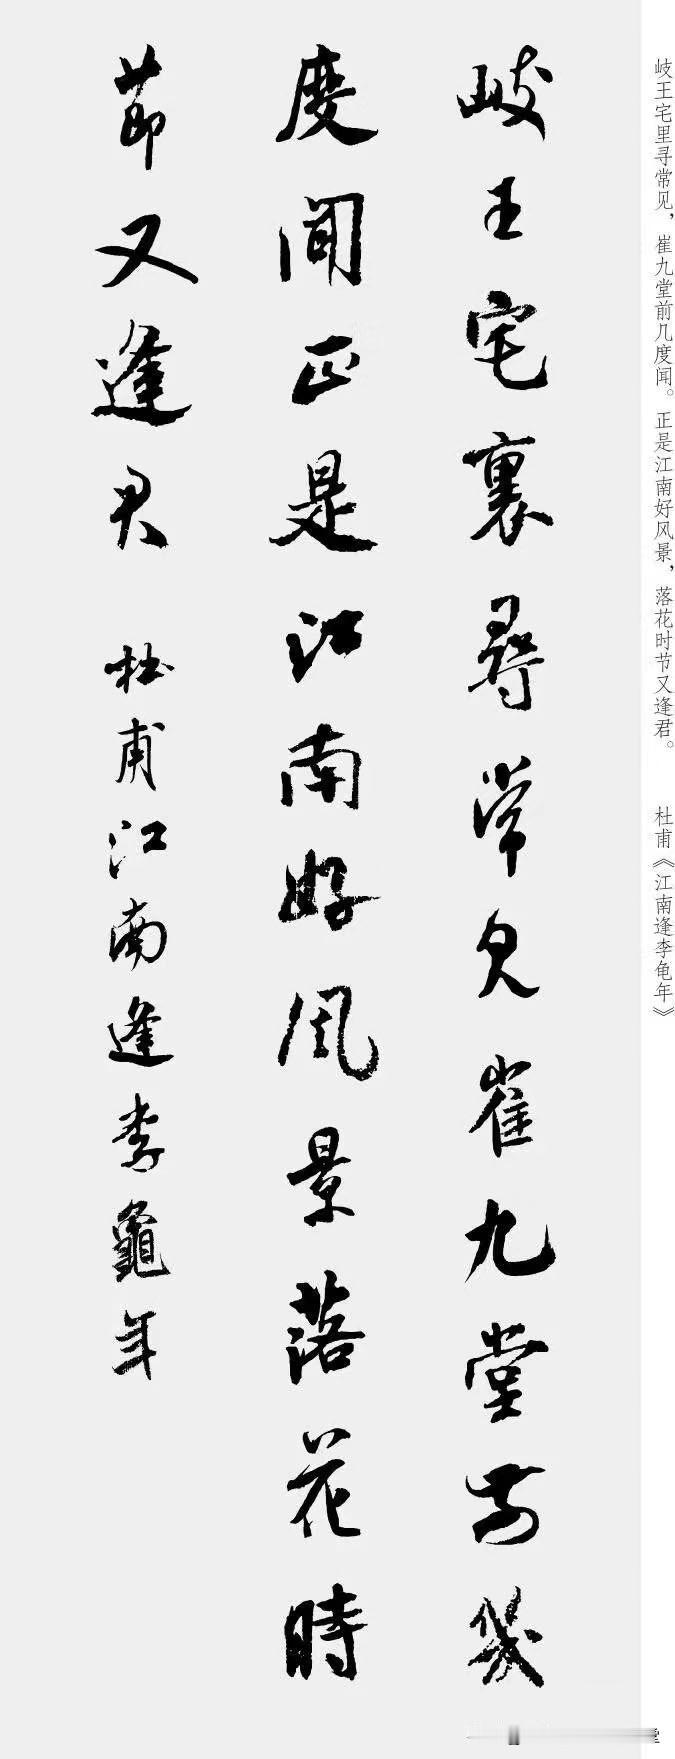 岐王宅裏尋常見崔九堂前幾
度聞正是江南好風景落花時
節又逢君 杜甫江南逢李龜年
岐王宅里寻常见，崔九堂前几度闻。正是江南好风景，落花时节又逢君。 杜甫《江南逢李龟年》